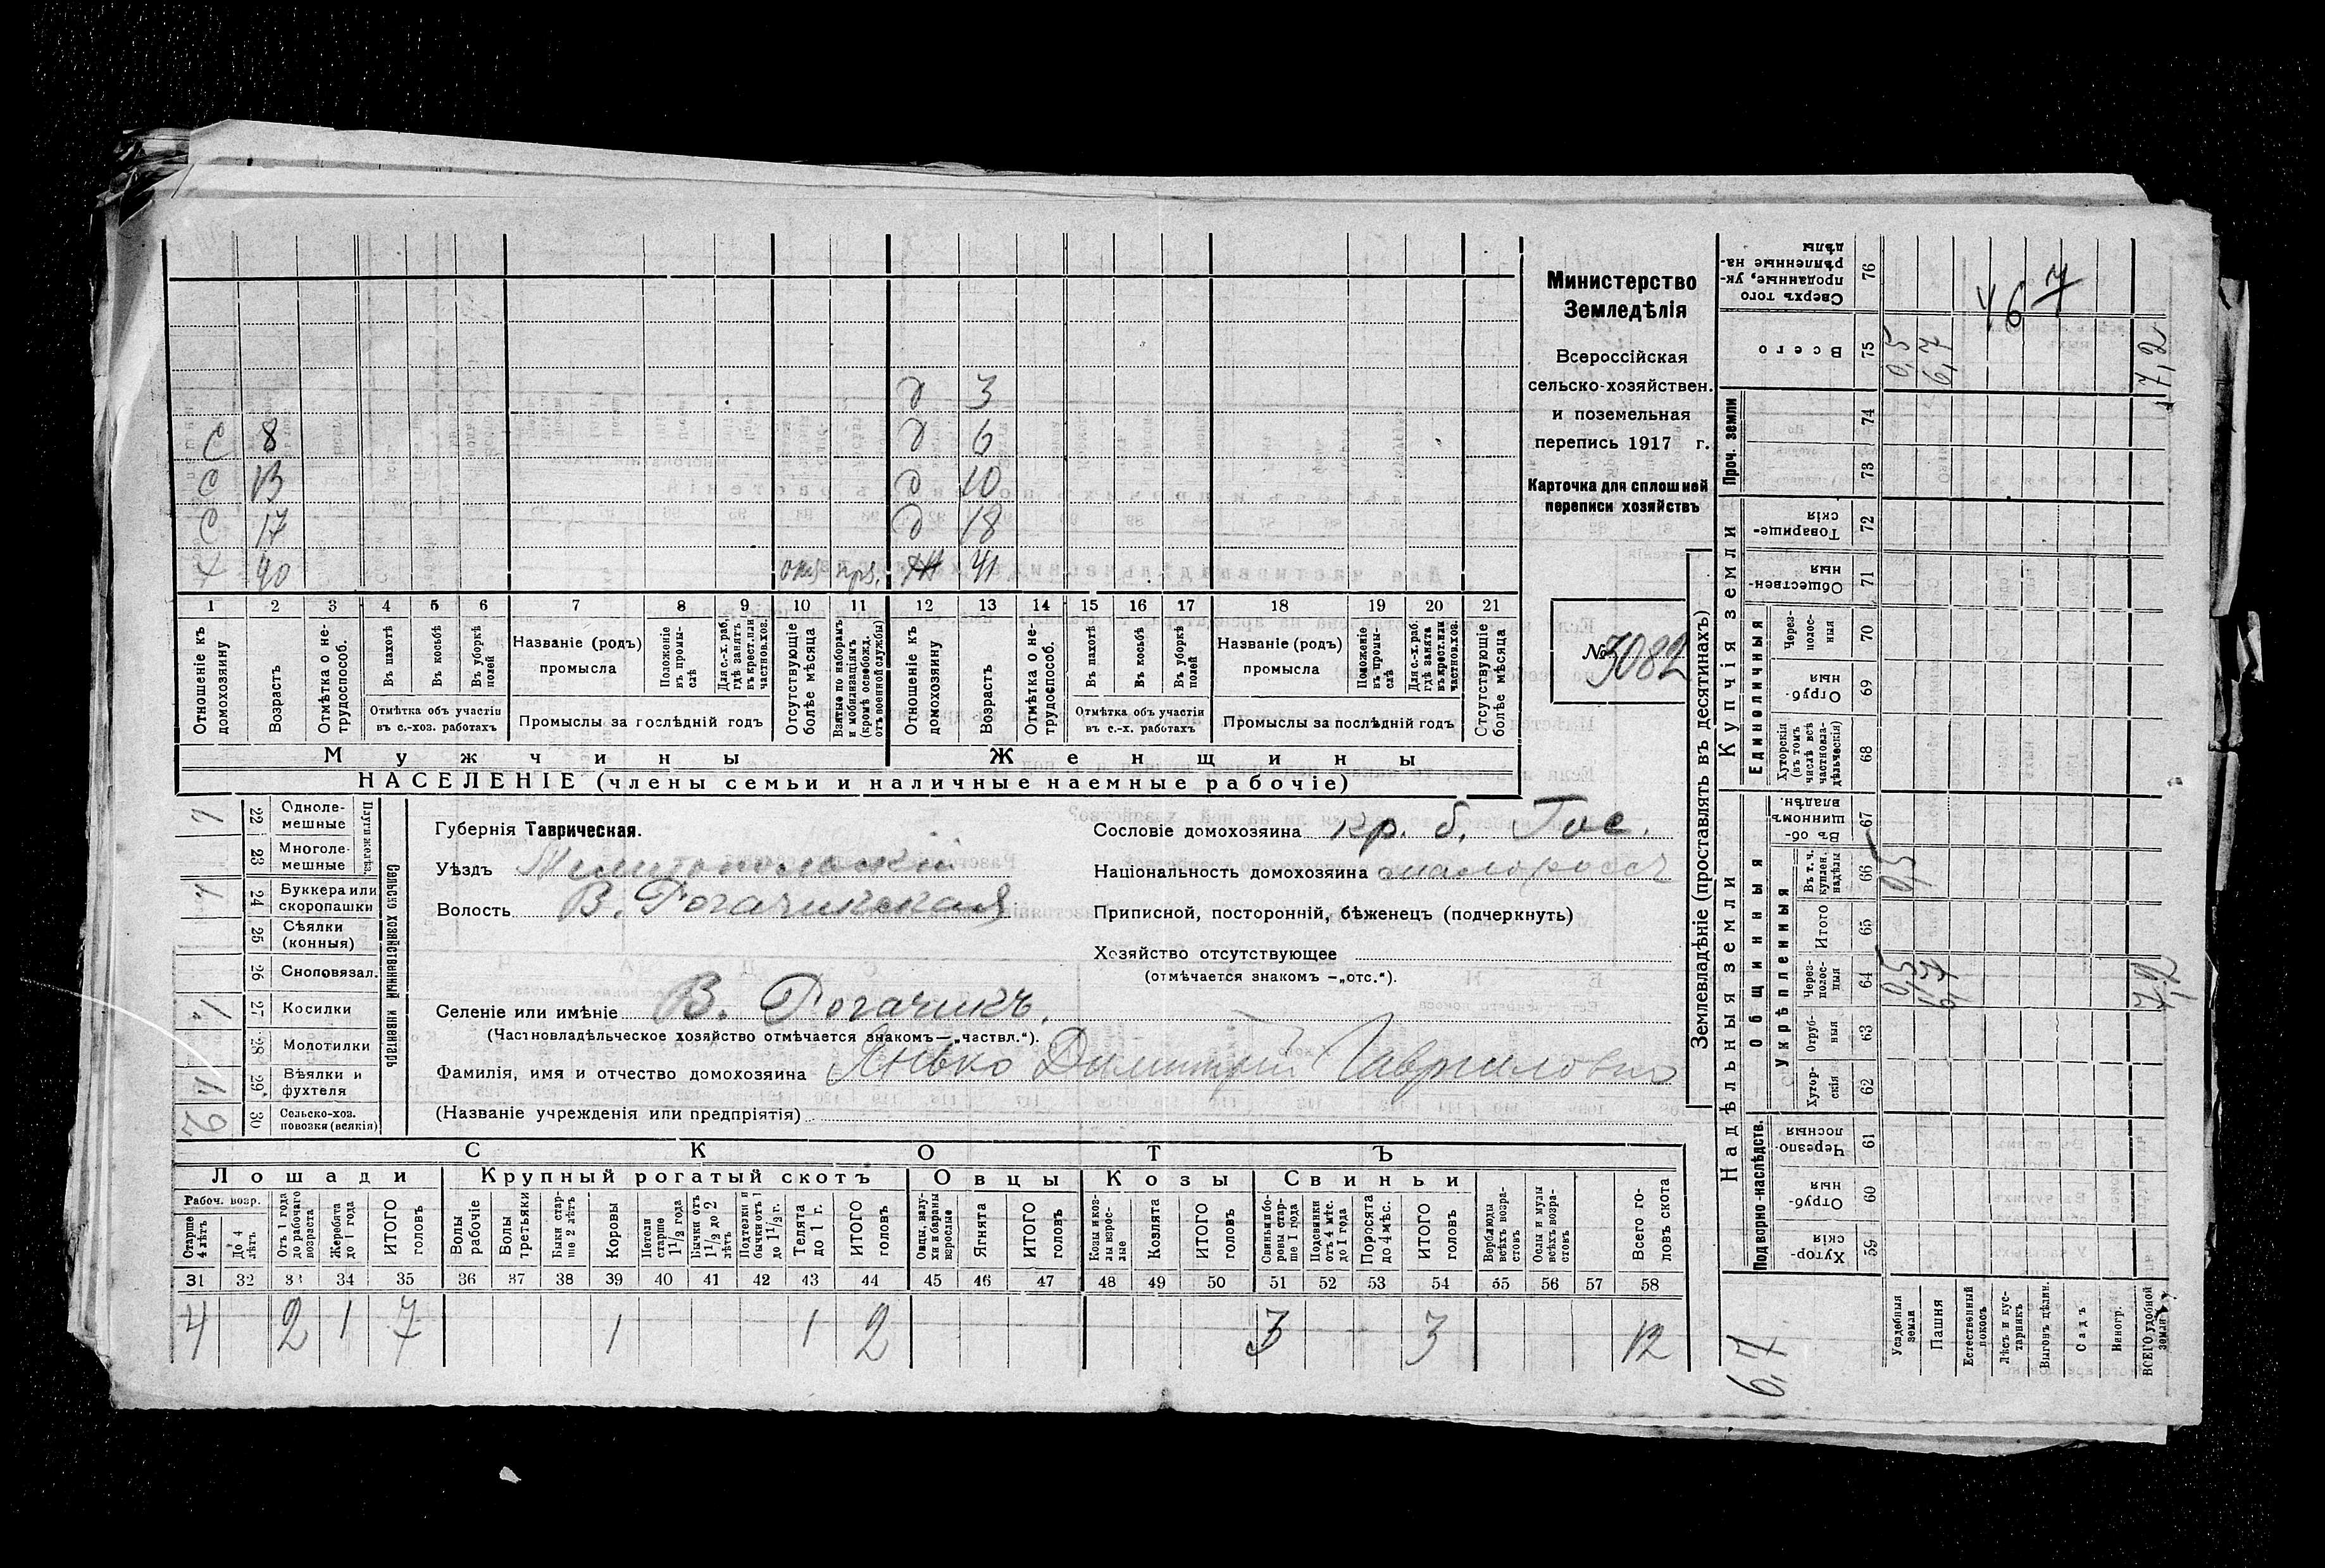 д 3
С 8 д 6
С 13 д 10
С 17 д 18
х 40 41
1 2 3 4 5 6 7 8 9 10 11 12 13 14 15 16 17 18 19 20 21
Отношеніе къ домохозяину
Возрастъ
Отмѣтка о не-трудоспособ.
Въ пахотѣ
Въ косьбѣ
Въ уборкѣ полей
Отмѣтка объ участіи
въ с.-хоз. работахъ
Названіе (родъ)
промысла
Положеніе въ промы-слѣ
Для с.-х. раб. гдѣ занятъ въ крест. или частнов. хоз.
Промыслы за послѣдній годъ
Отсутствующіе болѣе мѣсяца
Взятые по наборамъ и мобилизаціямъ (кромѣ освобожд. отъ военной службы)
Отношеніе къ домохозяину
Возрастъ
Отмѣтка о не-трудоспособ.
Въ пахотѣ
Въ косьбѣ
Въ уборкѣ полей
Отмѣтка объ участіи
въ с.-х. работахъ
Названіе (родъ)
промысла
Положеніе въ промы-слѣ
Для с.-х. раб. гдѣ занята въ крест. или частнов. хоз.
Промыслы за послѣдній годъ
Отсутствующіе болѣе мѣсяца
Мужчины Женщины
НАСЕЛЕНІЕ (члены семьи и наличные наемные рабочіе)
Министерство
Земледѣлія
Всероссійская
сельско-хозяйствен.
и поземельная
перепись 1917 г.
Карточка для сплошной
переписи хозяйствъ
№ 3082
Губернія Таврическая.
Уѣздъ Мелитопольскій
Волость В. Рогачикская
Селеніе или имѣніе В. Рогачикъ.
(Частновладѣльческое хозяйство отмѣчается знакомъ—„частвл.“).
Фамилія, имя и отчество домохозяина Янько Димитрій Гаврилович
(Названіе учрежденія или предпріятія)
Сословіе домохозяина кр. б. Гос.
Національность домохозяина малороссъ
Приписной, посторонній, бѣженецъ (подчеркнуть)
Хозяйство отсутствующее
(отмѣчается знакомъ —„отс.“).
Сельско хозяйственный инвентарь
Плуги желѣз.
22 Одноле-мешные 1
23 Многоле-мешные
24 Буккера или скоропашки 1
25 Сѣялки (конныя)
26 Сноповязал.
27 Косилки
28 Молотилки
29 Вѣялки и фухтеля
30 Сельско-хоз. повозки (всякія) 2
СКОТЪ
Лошади Крупный рогатый скотъ Овцы Козы Свиньи
Рабоч. возр.
Старше 4 лѣтъ
До 4 лѣтъ
Отъ 1 года до рабочаго возраста
Жеребята до 1 года
ИТОГО головъ
Волы рабочіе
Волы третьяки
Быки стар-ше 2 лѣтъ
Коровы
Нетели старше 1 1/2 года
Бычки отъ 1 1/2 до 2 лѣтъ
Подтелки и бычки отъ 1 до 1 1/2 г.
Телята до 1 г.
ИТОГО головъ
Овцы, валу-хи и бараны взрослые
Ягнята
ИТОГО головъ
Козы и коз-лы взрос-лые
Козлята
ИТОГО головъ
Свиньи и бо-ровы стар-ше 1 года
Подсвинки отъ 4 мѣс. до 1 года
Поросята до 4 мѣс.
ИТОГО головъ
Верблюды всѣхъ возра-стовъ
Ослы и мулы всѣхъ возра-стовъ
Всего го-ловъ скота
31 32 33 34 35 36 37 38 39 40 41 42 43 44 45 46 47 48 49 50 51 52 53 54 55 56 57 58
4 2 1 7 1 1 2 3 3 12
Землевладѣніе (проставлять въ десятинахъ)
Надѣльныя земли Купчія земли Проч. земли
Подворно-наслѣдств. Общинныя Единоличныя
Укрѣпленныя
Хутор-скія 59
Отруб-ныя 60
Черезпо-лосныя 61
Хутор-скія 62
Отруб-ныя 63
Через-полос-ныя 64
Итого 65
Въ т. ч. куплен. надѣлы 66
Въ об-щинномъ владѣн. 67
Хуторскія (въ томъ числѣ всѣ частновла-дѣльческія) 68
Отруб-ныя 69
Через-полос-ныя 70
Обществен-ныя 71
Товарище-скія 72
73
74
Всего 75
Сверхъ того проданные, ук-рѣпленные на-дѣлы 76
Усадебная земля 0,5 0,5 0,5
Пашня 6,7 6,7
Естественный покосъ
Лѣсъ и кус-тарникъ
Выгонъ цѣлин.
Садъ
Виногр.
ВСЕГО удобной земли 7,2 7,2
6,7